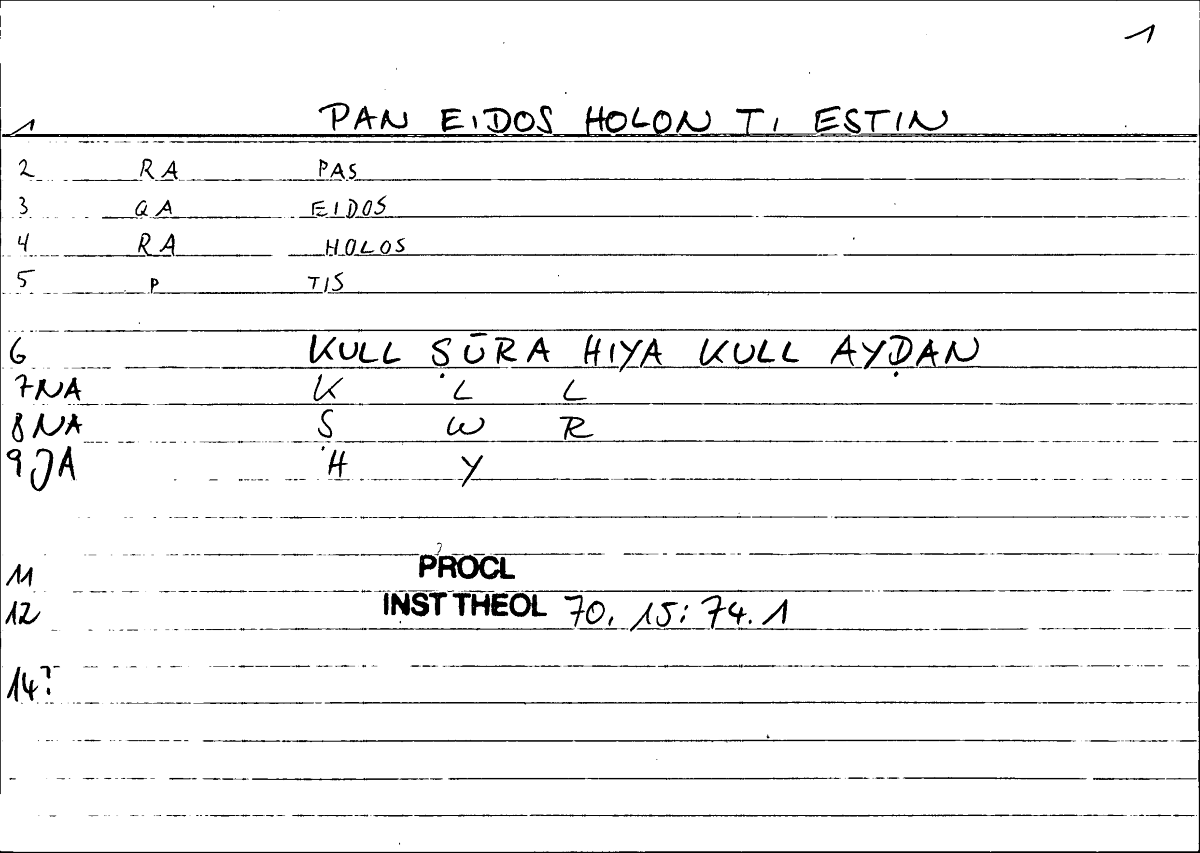 1
1 PAN EIDOS HOLON TI ESTIN
2 RA PAS
3 QA EIDOS
4 RA HOLOS
5 P TIS
6 KULL ṢŪRA HIYA KULL AYḌAN
7 NA K L L
8 NA Ṣ W R
9 JA H Y
11 PROCL
12 INST THEOL 70, 15: 74. 1
14?